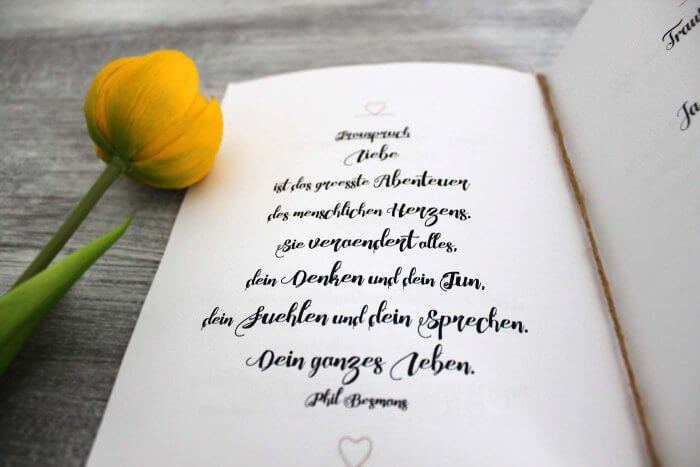 Trauspruch
Liebe
ist das groesste Abenteuer
des menschlichen Herzens.
Sie veraendert alles,
dein Denken und dein Tun,
dein Fuehlen und dein Sprechen.
Dein ganzes Leben.
Phil Bosmans
Trau
Ja